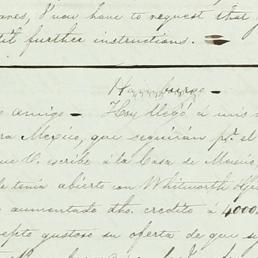 I now have to request that
further instructions.
Hamburgo
amigo - Hoy llegó á mis
México, que seguirán pr. el
V. escribe á la Casa de
tenia abierto con Whitworth
aumentado dho. credito á 4000
gustoso su oferta de que